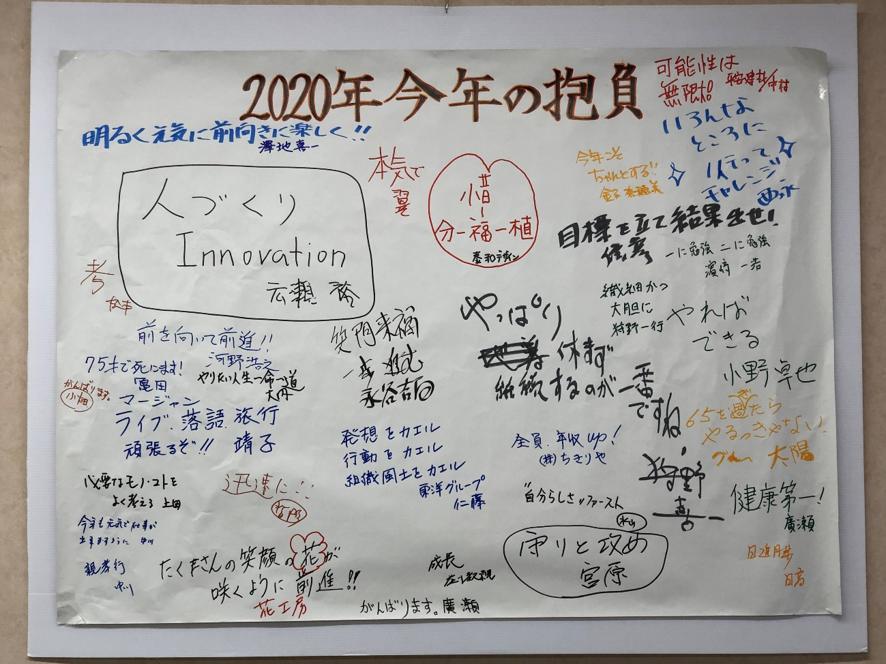 2020年今年の抱負
可能性は
無限大!
明るく元気に前向きに楽しく!!
澤地喜一
いろんな
ところに
行って
チャレンジ
今年こそ
ちゃんとする!!
本気で
翼
惜
分一福一植
人づくり
Innovation
広瀬
目標を立て結果出せ!
一に勉強 二に勉強
濱崎 一浩
考
繊細かつ
大胆に
狩野一行
やれば
できる
小野卓也
前を向いて前進!!
河野浩之
笑門来福
永谷吉由
やっぱり
休まず
継続するのが一番
ですね
狩野
75才で死にます!
亀田
やりたい人生一命一道
がんばります。
小畑
マージャン
ライブ、落語、旅行
頑張るぞ!! 靖子
発想をカエル
行動をカエル
組織風土をカエル
東洋グループ
仁藤
全員年収up!
(株)ちぎりや
65を過ぎたら
やるっきゃない!
太陽
健康第一!
廣瀬
必要なモノ・コトを
よく考える 上田
迅速に!!
"自分らしさ"ファースト
守りと攻め
宮原
今年も元気で仕事が
出来ますように 中川
親孝行
たくさんの笑顔の花が
咲くように前進!!
花工房
成長
がんばります。廣瀬
日進月歩